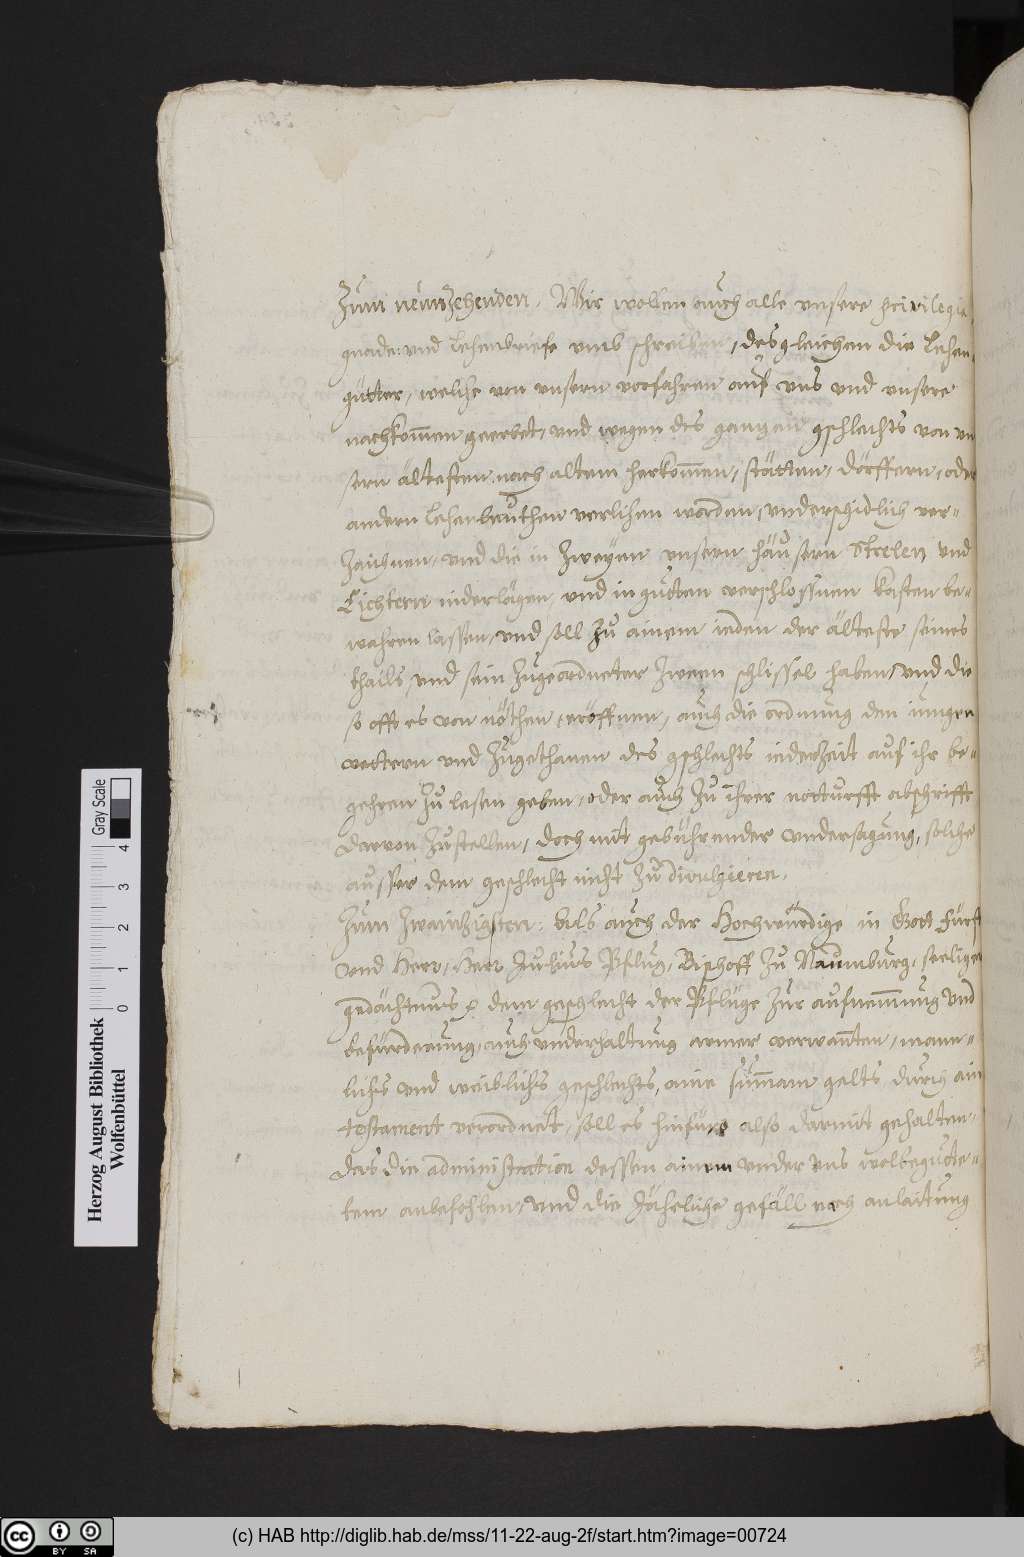 Zum neunzehenden. Wir wollen auch alle unsere privilegia,
gnade: und Lehenbriefe umb schreiben, desgleichen die Lehen-
gütter, welche von unsern vorfahren auf uns und unsere
nachkom̄en geerbet, und wegen des ganzen gschlechts von un
sern ältesten nach altem herkom̄en, stätten, dörffern, oder
andern Lehenleuthen verlihen worden, underschidlich ver-
zaichnen, und die in zweyen unsern häusern Strelen und
Eichtern niderlägen, und in gutten verschlossnen kasten be-
wahren lassen, und soll zu ainem ieden der älteste seines
thails, und sein zugeordneter zween schlissel haben, und die
so offt es von nöthen, eröffnen, auch die ordnung den iungen
vettern und zugethanen des gschlechts iederzeit auf ihr be-
gehren zu lesen geben, oder auch zu ihrer notturfft abschrifft
darvon zustellen, doch mit gebührender undersagung, solche
ausser dem geschlecht nicht zu divulgieren.
Zum zwainzigsten: Als auch der Hochwürdige in Gott Fürst
und Herr, Herr Julius Pflug, Bischoff zu Naumburg, seeliger
gedächtnus dem geschlecht der Pflüge zur aufnem̄ung und
befürderung, auch underhaltung armer verwanten, mann-
lichs und weiblichs geschlechts, aine sum̄am gelts durch ain
testament verordnet, soll es hinfüro also darmit gehalten,
das die administration dessen ainem under uns wolbegütte-
tem anbefohlen, und die Jährliche gefäll nach anlaitung
Herzog August Bibliothek
Wolfenbüttel
Gray Scale
0 1 2 3 4
cc BY SA
(c) HAB http://diglib.hab.de/mss/11-22-aug-2f/start.htm?image=00724